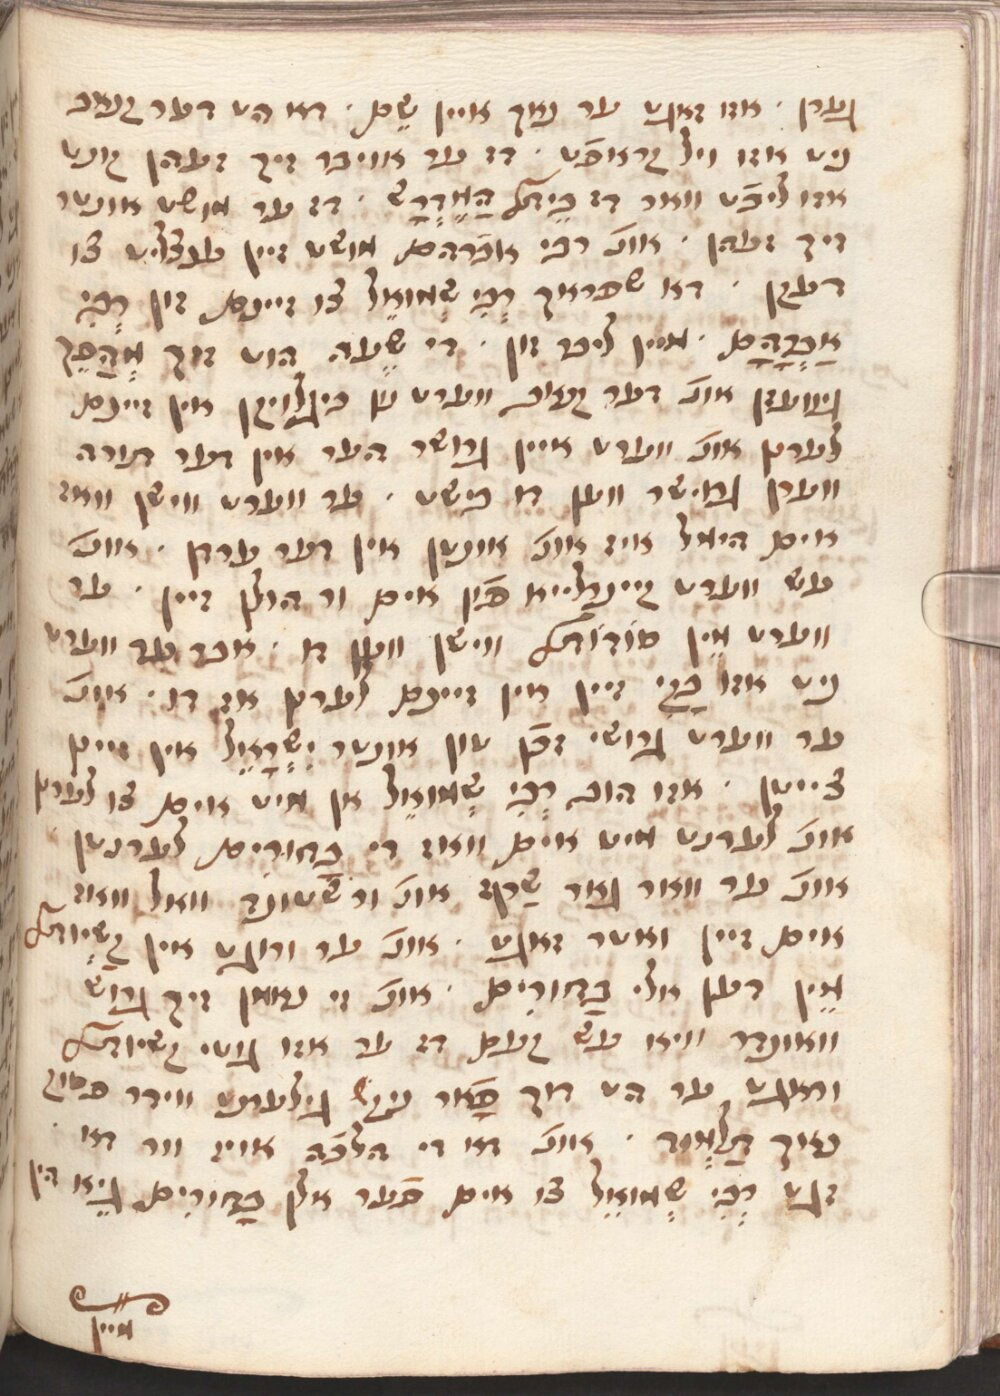 גערן · אזו זאגט ער נאך איין שֵם · דא הט דער קנאב
ניט אזו ויל גראפֿט · דז ער אוויבר זיך זעהן קונט
אזו ליכֿט וואר דז בֵיתֿ הַמִדְרָש · דז ער מושט אונטר
זיך זעהן · אונ׳ רבי אברהם מושט זיין טנצליט צו
דעקן · דא שפראך רְבִי שְמוּאֵל צו זיינם זון רְבִי
אַבְרָהָם · מיין ליבר זון · די שָעָה הוט דוך מְהַפֵך
גיוועזן אונ׳ דער קנאב ווערט ען ביגלויקן אין זיינם
לערנן אונ׳ ווערט איין גרושר הער אין דער תורה
ווערן גרוישר ווען דו בישט · ער ווערט ווישן וואז
אוים הימל אויז אונ׳ אונטן אין דער ערדן · אונ׳
עש ווערט קיינרלייא פֿון אים ור הולן זיין · ער
ווערט מֵין סוֹדוֹתֿ ווישן ווען דו · אבר ער ווערט
ניט אזו בָקִי זיין אין זיינם לערנן אז דו · אונ׳
ער ווערט גרושי זכֿן טון אונטר יִשְרָאֵל אין זיינן
צייטן · אזו הוב רְבִי שְמוּאֵל אן מיט אוים צו לערנן
אונ׳ לערנט מיט אוים וואז די בַחוּרִים לערנטן
אונ׳ ער וואר גאר שַרְף אונ׳ ור שטונד וואל וואז
אוים זיין ואטר זאגט · אונ׳ ער ורוגט אין קַשְיוֹתֿ
מֵין דען אלי בַחוּרִים · אונ׳ זי נאמן זיך גרוש
וואונדר וויא עש קעם דז ער אזו גוטי קשיותֿ
וראגט ער הט דוך פָֿאר ניקש גילערנט ווידר פסוק
נאוך תַלְמוּד · אונ׳ דא די הלכֿה אויז וור דא ·
זגט רְבִי שְמוּאֵל צו אים פֿער אלן בַחוּרִים גֵיא הין
מיין